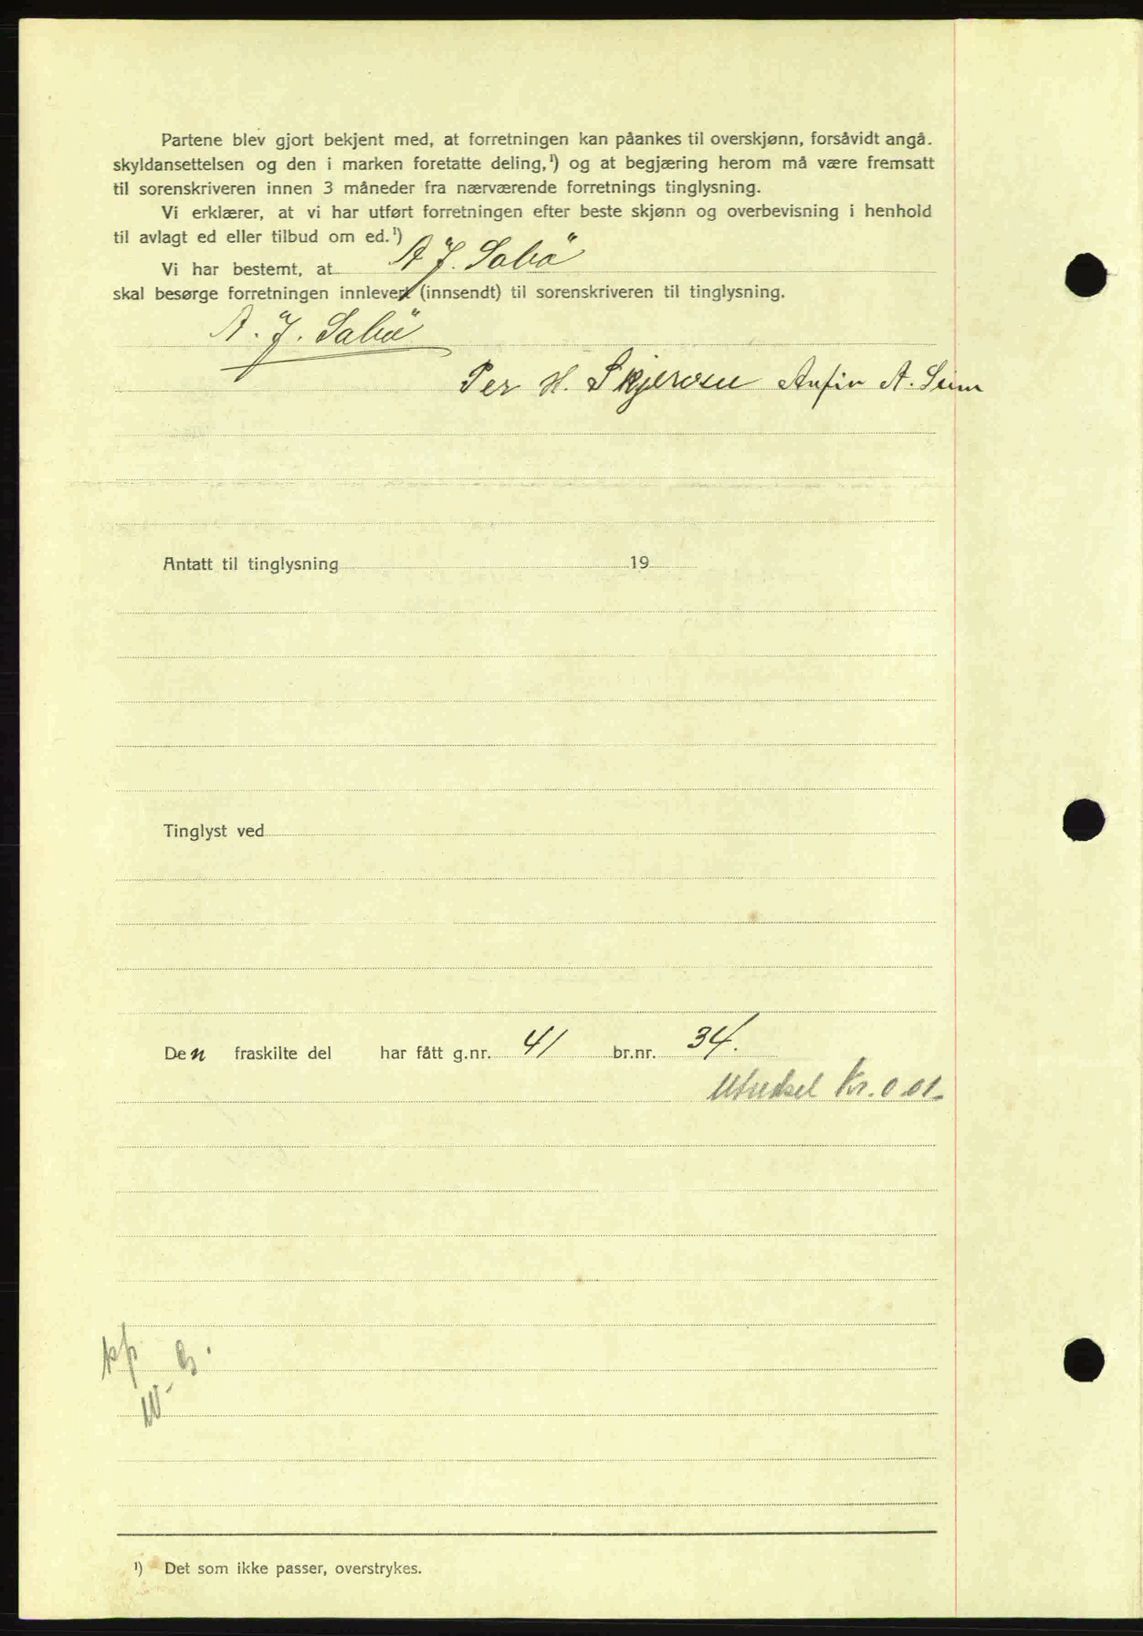 Partene blev gjort bekjent med, at forretningen kan påankes til overskjønn, forsåvidt angå.
skyldansettelsen og den i marken foretatte deling,¹) og at begjæring herom må være fremsatt
til sorenskriveren innen 3 måneder fra nærværende forretnings tinglysning.
Vi erklærer, at vi har utført forretningen efter beste skjønn og overbevisning i henhold
til avlagt ed eller tilbud om ed.¹)
Vi har bestemt, at A J. Sabö
skal besørge forretningen innlevert (innsendt) til sorenskriveren til tinglysning.
A. J. Sabö
Per H. Skjervsu Anfin A. Seim
Antatt til tinglysning 19
Tinglyst ved
Den fraskilte del har fått g.nr. 41 br.nr. 34.
Kr. 0.01.
¹) Det som ikke passer, overstrykes.